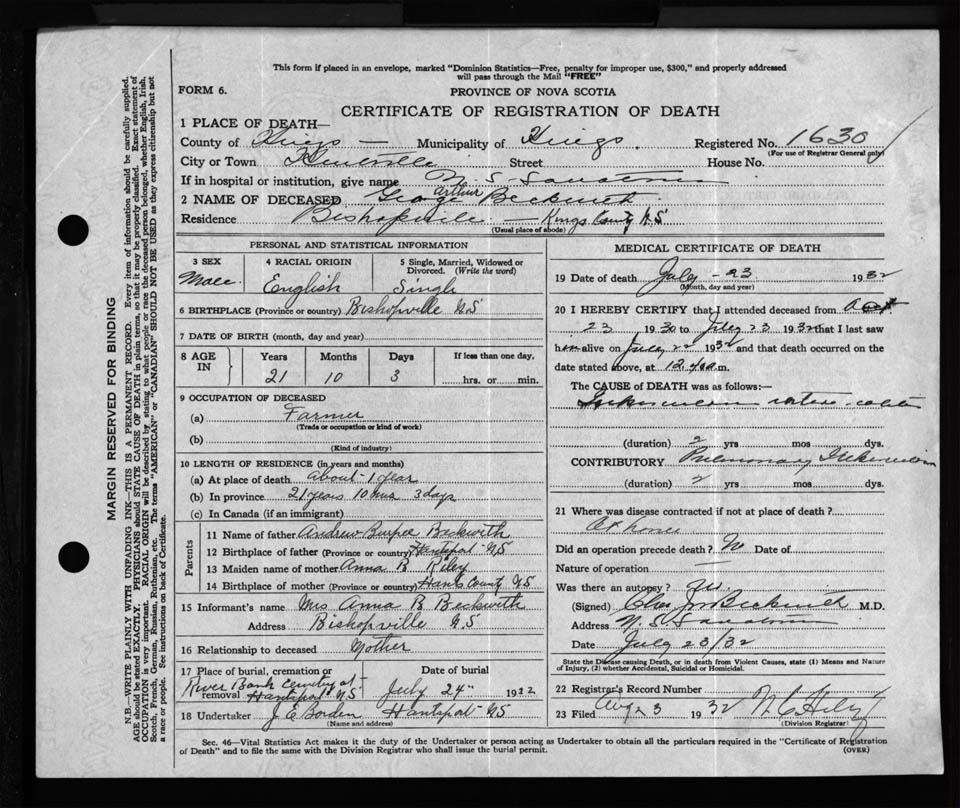 This form if placed in an envelope, marked "Dominion Statistics—Free, penalty for improper use, $300," and properly addressed
will pass through the Mail "FREE"
FORM 6.
PROVINCE OF NOVA SCOTIA
CERTIFICATE OF REGISTRATION OF DEATH
1 PLACE OF DEATH—
County of Kings — Municipality of Kings. Registered No. 1630
(For use of Registrar General only)
City or Town Kentville Street House No.
If in hospital or institution, give name N.S. Sanatorium
2 NAME OF DECEASED George Arthur Beckwith
Residence Bishopville — Kings County N.S.
(Usual place of abode)
PERSONAL AND STATISTICAL INFORMATION
3 SEX 4 RACIAL ORIGIN 5 Single, Married, Widowed or
Divorced. (Write the word)
Male English Single
6 BIRTHPLACE (Province or country) Bishopville N.S
7 DATE OF BIRTH (month, day and year)
8 AGE IN Years Months Days If less than one day,
21 10 3 hrs. or min.
9 OCCUPATION OF DECEASED
(a) Farmer
(Trade or occupation or kind of work)
(b)
(Kind of industry)
10 LENGTH OF RESIDENCE (in years and months)
(a) At place of death about 1 year
(b) In province 21 years 10 mos 3 days
(c) In Canada (if an immigrant)
Parents
11 Name of father Andrew Burpee Beckwith
12 Birthplace of father (Province or country) Hantsport N.S
13 Maiden name of mother Anna B Riley
14 Birthplace of mother (Province or country) Hants County N.S
15 Informant's name Mrs Anna B Beckwith
Address Bishopville N.S
16 Relationship to deceased Mother
17 Place of burial, cremation or removal Date of burial
River Bank Cemetery at
Hantsport N.S July 24" 1932
18 Undertaker J. E Borden Hantsport N.S
(Name and address)
MEDICAL CERTIFICATE OF DEATH
19 Date of death July - 23 1932
(Month, day and year)
20 I HEREBY CERTIFY that I attended deceased from Oct
23 1930 to July 23 1932 that I last saw
him alive on July 22 1932 and that death occurred on the
date stated above, at 12. a.m.
The CAUSE of DEATH was as follows:—
(duration) 2 yrs mos dys.
CONTRIBUTORY Pulmonary
(duration) 2 yrs. mos. dys.
21 Where was disease contracted if not at place of death?
At home
Did an operation precede death? No Date of
Nature of operation —
Was there an autopsy? No.
(Signed) Beckwith M.D.
Address N.S Sanatorium
Date July 23/32
State the Disease causing Death, or in death from Violent Causes, state (1) Means and Nature
of Injury, (2) whether Accidental, Suicidal or Homicidal.
22 Registrar's Record Number
23 Filed Aug 3 1932
(Division Registrar)
Sec. 46—Vital Statistics Act makes it the duty of the Undertaker or person acting as Undertaker to obtain all the particulars required in the "Certificate of Registration
of Death" and to file the same with the Division Registrar who shall issue the burial permit. (OVER)
MARGIN RESERVED FOR BINDING
N.B.—WRITE PLAINLY WITH UNFADING INK—THIS IS A PERMANENT RECORD. Every item of information should be carefully supplied.
AGE should be stated EXACTLY. PHYSICIANS should STATE CAUSE OF DEATH in plain terms, so that it may be properly classified. Exact statement of
OCCUPATION is very important. RACIAL ORIGIN will be described by stating to what people or race the deceased person belonged, whether English, Irish,
Scotch, French, German, Russian, Ruthenian, etc. The terms "AMERICAN" or "CANADIAN" SHOULD NOT BE USED as they express citizenship but not
a race or people. See instructions on back of Certificate.